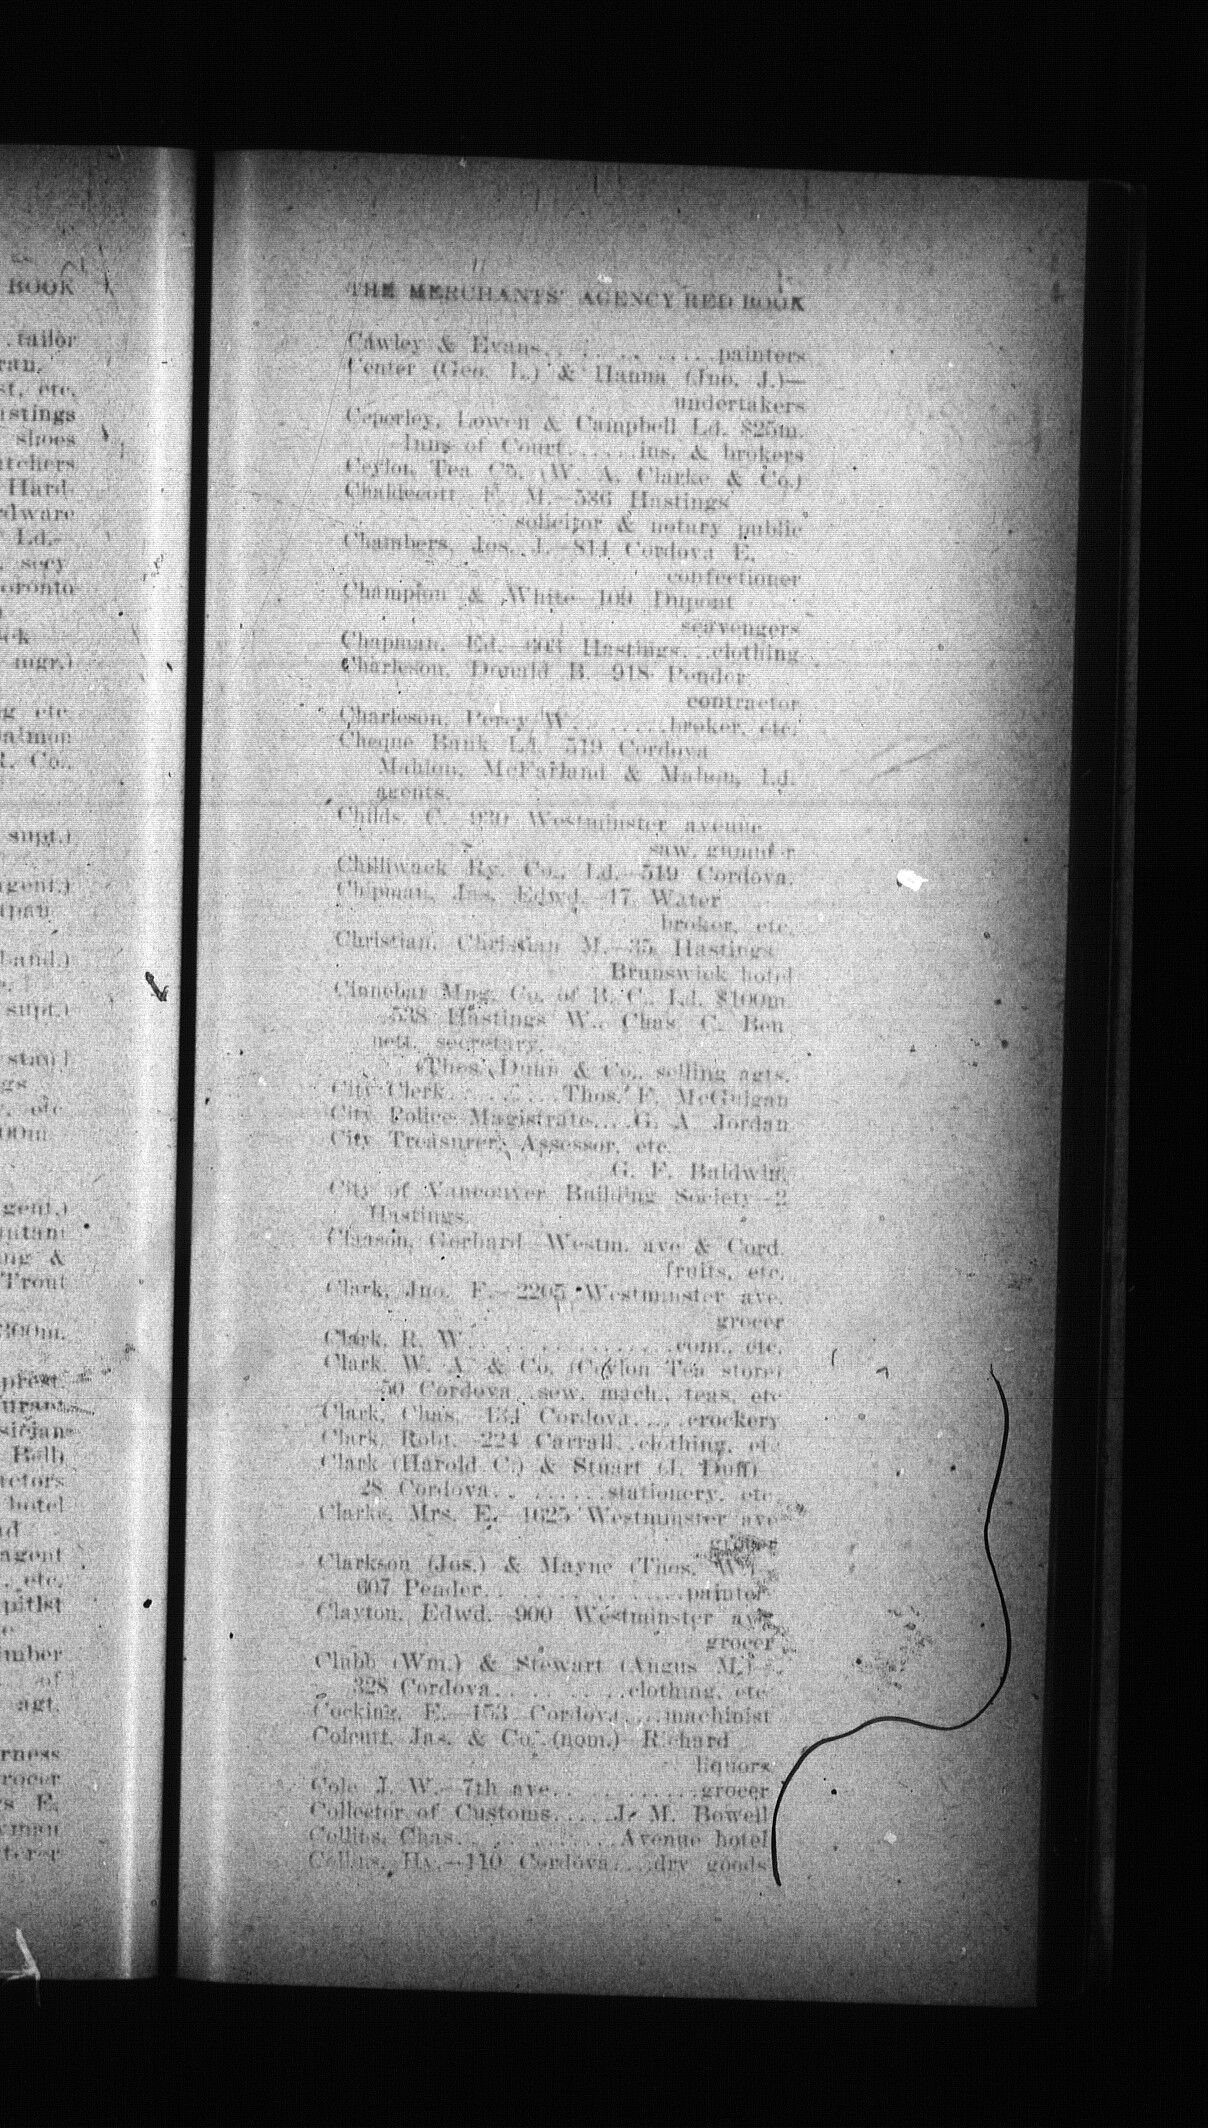 BOOK
tailor
ran,
st, etc.
astings
shoes
tchers
Hard-
dware
Ld.-
secy
oronto
ck
mgr.)
g etc
almon
R. Co.,
supt.)
gent.)
and.)
supt.)
gs
etc
00m
gent.)
untant
ng &
Trout
300m.
prest.
urant
sician
Bell)
actors
hotel
nd
agent
etc.
pitlst
mber
of
agt.
rness
rocer
s E.
yman
terer
THE MERCHANTS' AGENCY RED BOOK
Cawley & Evans..............painters
Center (Geo. L.) & Hanna (Jno. J.)—
undertakers
Ceperley, Lowen & Campbell Ld. $25m.
Inns of Court......ins. & brokers
Ceylon Tea Co. (W. A. Clarke & Co.)
Chaldecott F. M.—536 Hastings
solicitor & notary public
Chambers, Jos. J.—814 Cordova E.
confectioner
Champion & White—109 Dupont
scavengers
Chapman, Ed.—603 Hastings...clothing
Charleson, Donald B.—918 Pender
contractor
Charleson, Percy W.........broker, etc.
Cheque Bank Ld.—519 Cordova
Mahlon, McFarland & Mahon, Ld.
agents.
Childs, C.—930 Westminster avenue
saw gummer
Chilliwack Ry. Co., Ld.—519 Cordova.
Chipman, Jas. Edwd.—17 Water
broker, etc.
Christian, Christian M.—35 Hastings
Brunswick hotel
Cinnebar Mng. Co. of B. C., Ld. $100m
538 Hastings W., Chas C. Ben
nett, secretary.
(Thos. Dunn & Co., selling agts.
City Clerk.........Thos. F. McGuigan
City Police Magistrate....G. A Jordan
City Treasurer, Assessor, etc.
G. F. Baldwin.
City of Vancouver Building Society—2
Hastings.
Claason, Gerhard—Westm. ave & Cord.
fruits, etc.
Clark, Jno. F.—2205 Westminster ave.
grocer
Clark, R. W.................com., etc.
Clark, W. A. & Co. (Ceylon Tea store)
50 Cordova..sew. mach., teas, etc
Clark, Chas. 434 Cordova.....crockery
Clark, Robt.—224 Carrall..clothing, et
Clark (Harold C.) & Stuart (J. Duff)
28 Cordova.........stationery, etc.
Clarke, Mrs. E.—1625 Westminster ave
grocer
Clarkson (Jos.) & Mayne (Thos. W.)
607 Pender................painters
Clayton, Edwd.—900 Westminster ave
grocer
Clubb (Wm.) & Stewart (Angus M.)—
328 Cordova..........clothing, etc
Cocking, E.—153 Cordova....machinist
Colcutt, Jas. & Co. (nom.) Richard
liquors
Cole J. W.—7th ave............grocer
Collector of Customs.....J. M. Bowell
Collins, Chas.............Avenue hotel
Collins, Hy.—110 Cordova....dry goods